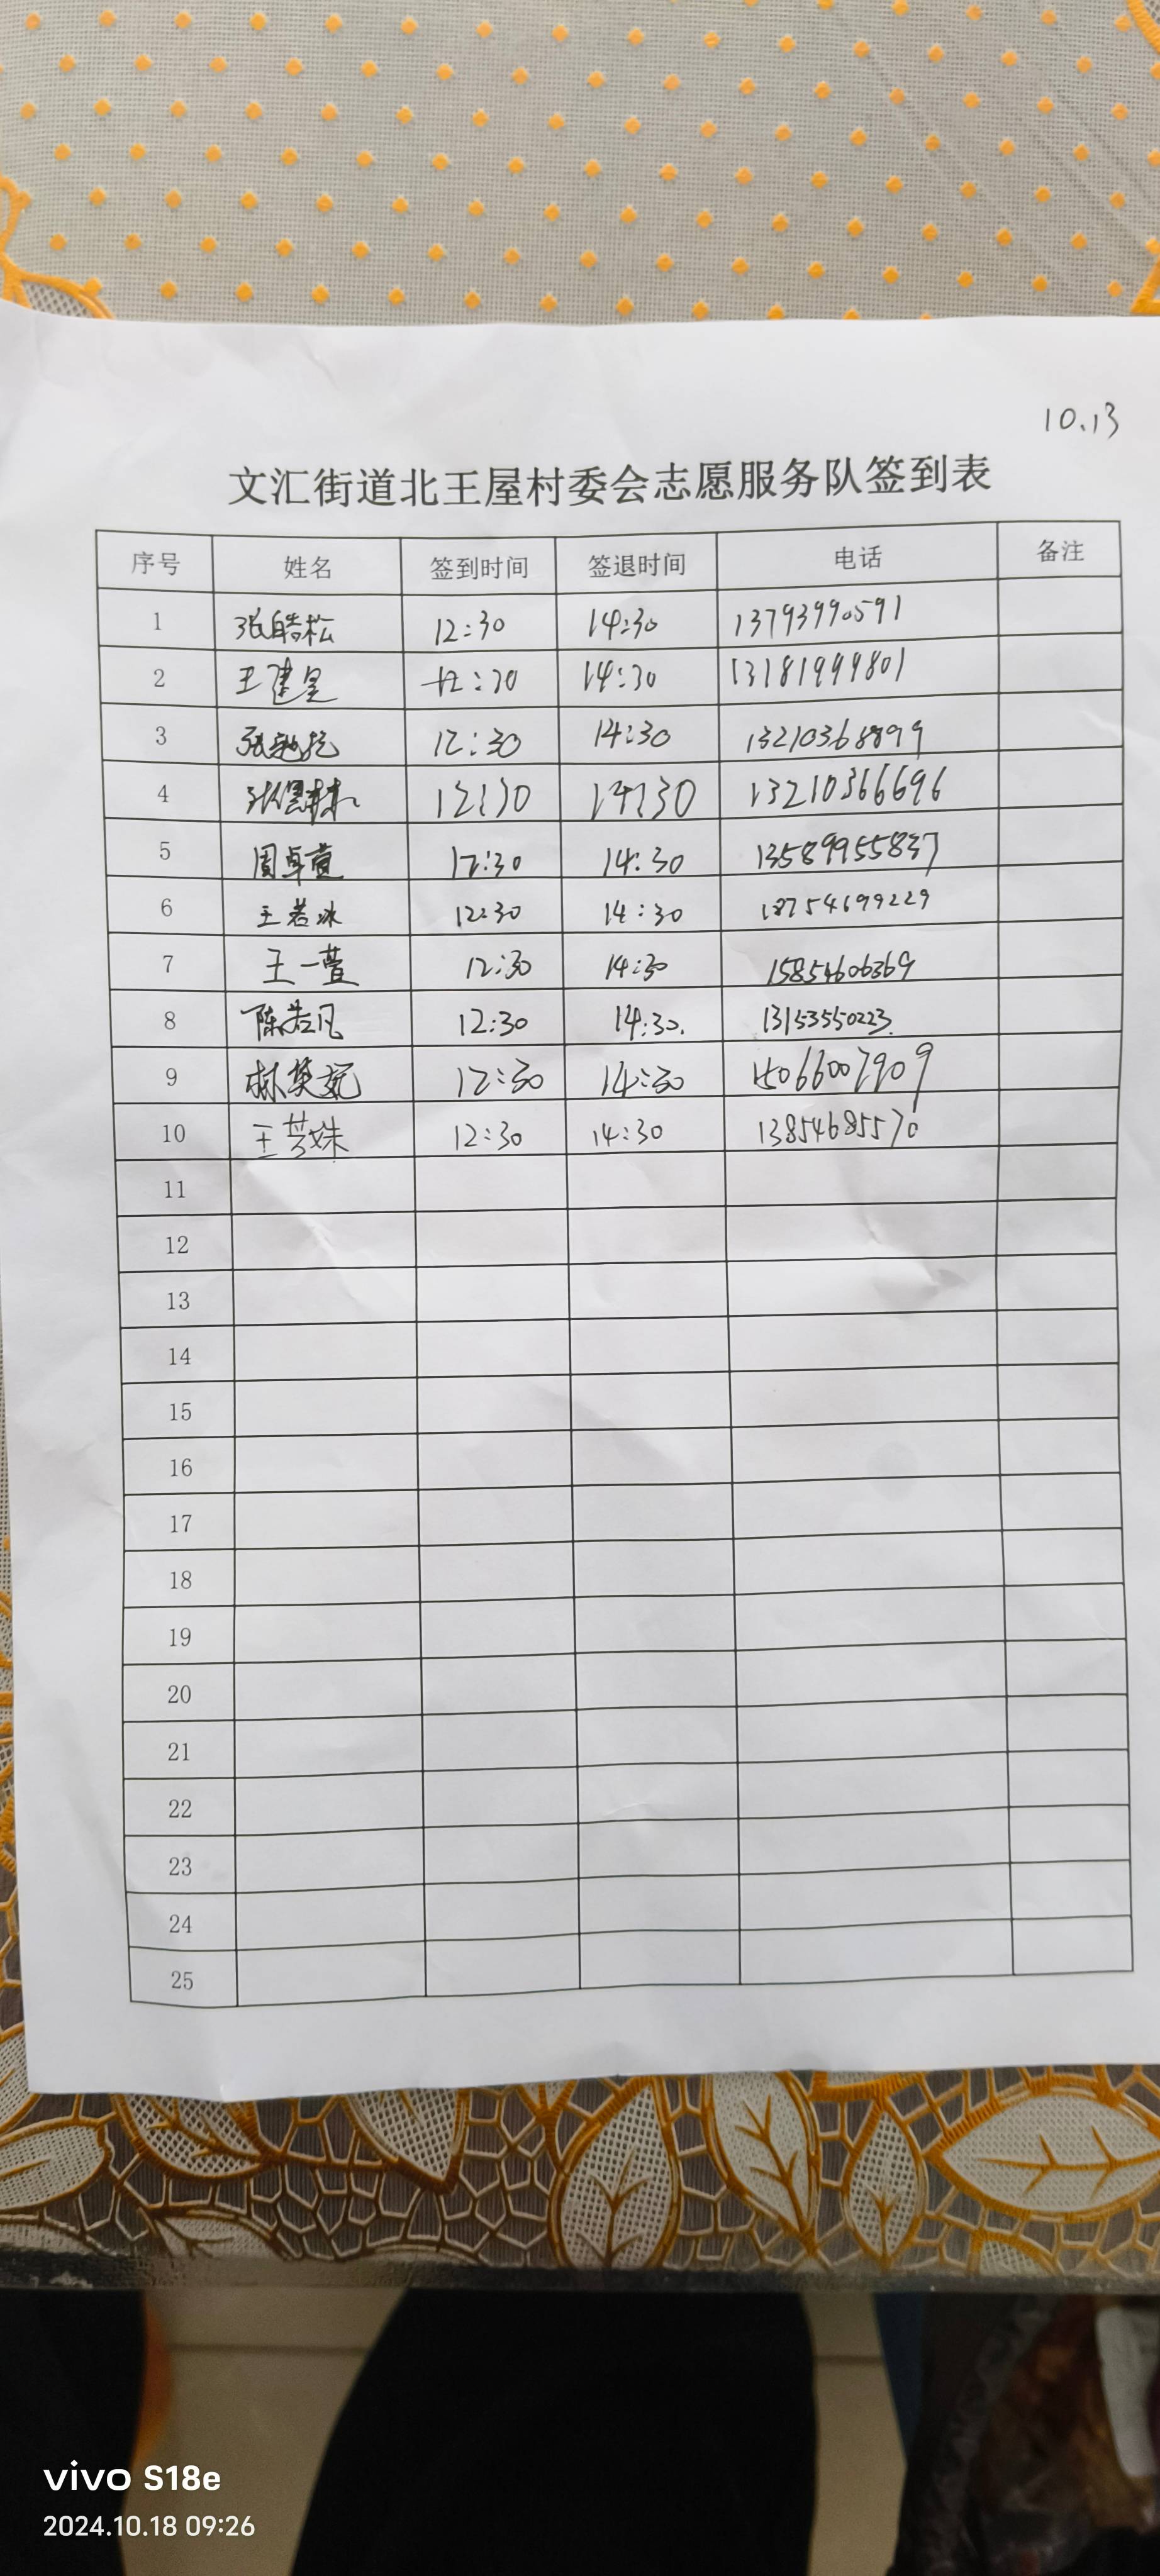 10.13
文汇街道北王屋村委会志愿服务队签到表
序号 姓名 签到时间 签退时间 电话 备注
1 张皓松 12:30 14:30 13793990591
2 王建昊 12:30 14:30 13181999801
3 12:30 14:30 13210368899
4 12:30 14:30 13210366696
5 周卓萱 12:30 14:30 13589955837
6 王若冰 12:30 14:30 18754699229
7 王一萱 12:30 14:30 15854606369
8 陈若凡 12:30 14:30. 13153550223.
9 12:30 14:30 15066007909
10 王艺姝 12:30 14:30 13854685570
11
12
13
14
15
16
17
18
19
20
21
22
23
24
25
vivo S18e
2024.10.18 09:26